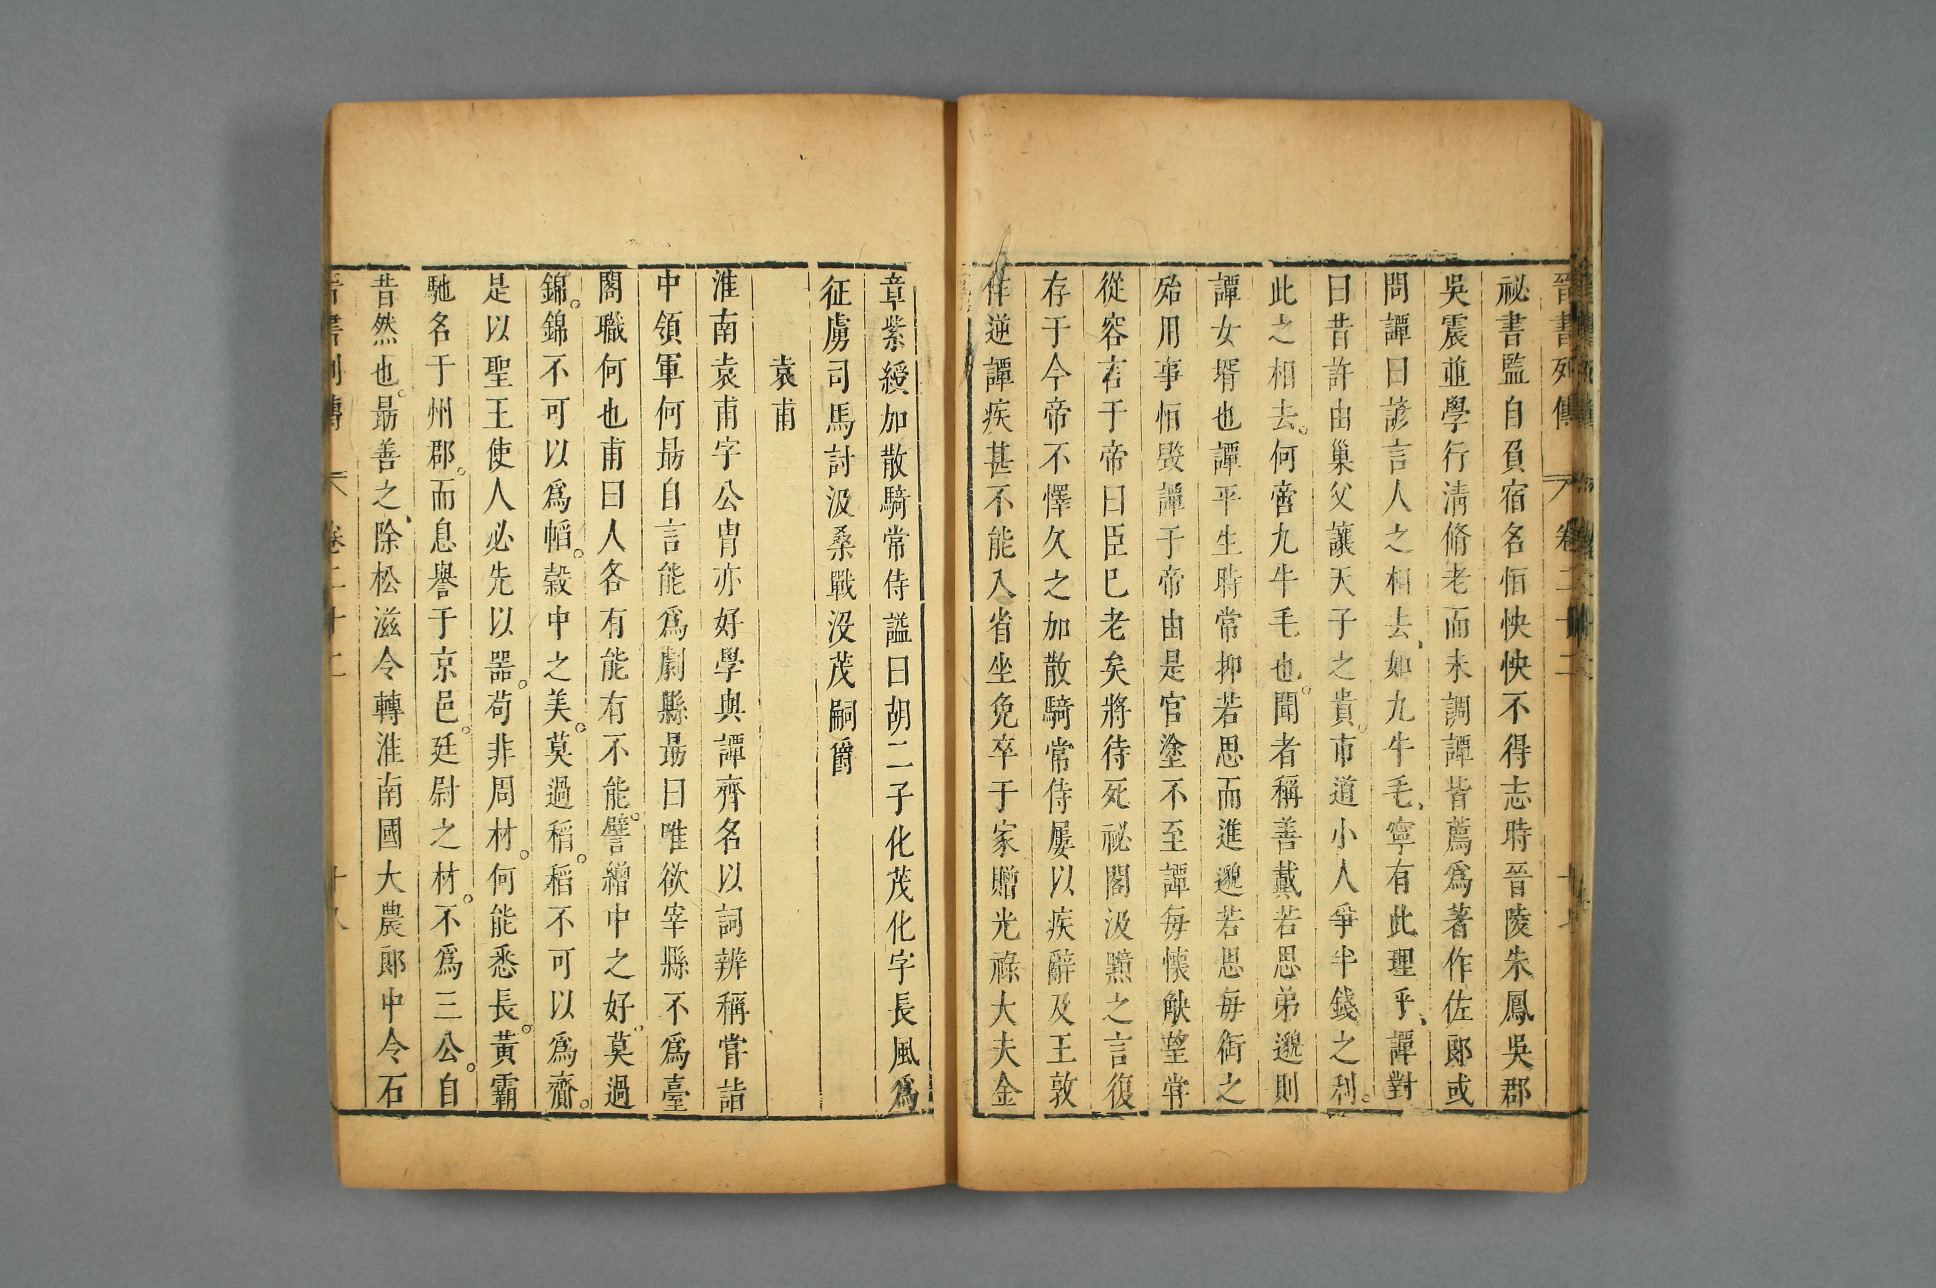 晉書列傳 卷二十二
祕書監自負宿名恒怏怏不得志時晉陵朱鳳吳郡
吳震並學行淸脩老而未調譚皆薦爲著作佐郞或
問譚曰諺言人之相去如九牛毛寧有此理乎譚對
曰昔許由巢父讓天子之貴市道小人爭半錢之利
此之相去何啻九牛毛也聞者稱善戴若思弟邈則
譚女壻也譚平生時常抑若思而進邈若思每銜之
殆用事恒毀譚于帝由是官塗不至譚每懷觖望嘗
從容言于帝曰臣已老矣將待死祕閣汲黯之言復
存于今帝不懌久之加散騎常侍屢以疾辭及王敦
作逆譚疾甚不能入省坐免卒于家贈光祿大夫金
章紫綬加散騎常侍諡曰胡二子化茂化字長風爲
征虜司馬討汲桑戰没茂嗣爵
袁甫
淮南袁甫字公胄亦好學與譚齊名以詞辨稱嘗詣
中領軍何勗自言能爲劇縣勗曰唯欲宰縣不爲臺
閣職何也甫曰人各有能有不能譬繒中之好莫過
錦錦不可以爲幍穀中之美莫過稻稻不可以爲齏
是以聖王使人必先以器苟非周材何能悉長黃霸
馳名于州郡而息譽于京邑廷尉之材不爲三公自
昔然也勗善之除松滋令轉淮南國大農郞中令石
晉書列傳 卷二十二 十八